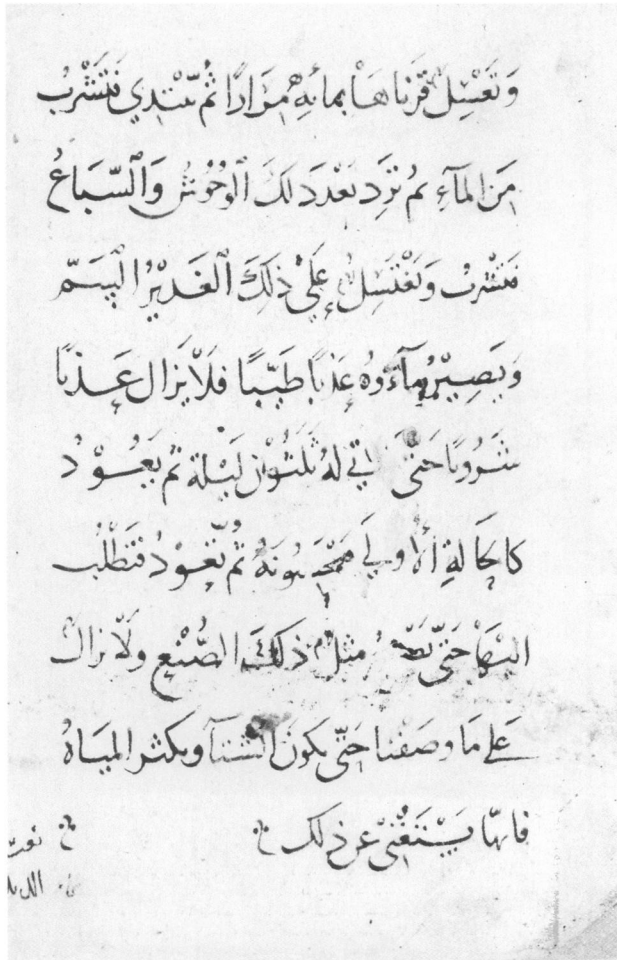 وَتَغْسِلُ قَرْنَاهَا بِمَائِهِ مِرَارًا ثُمَّ تَبْتَدِي فَتَشْرَبُ
مِنَ المَآءِ ثُمَّ تَرِد بَعْدَ ذَلِكَ الْوُحُوشُ وَالسِّبَاعُ
فَتَشْرَبُ وَتَغْتَسِلُ عَلَى ذَلِكَ الغَدِيْرُ
وَيَصِيْرُ مَآءُوهُ عَذْبًا طَيِّبًا فَلَا يَزَال عَذْبًا
شَرُوبًا حَتَّى لَهُ ثَلَثُوْنَ لَيْلَة ثم يَعُوْدُ
كَا كَالَةِ الأُولَى ثُمَّ تَعُوْدُ فَتَطْلُب
حَتَّى مِثْلَ ذَلِكَ الصُّنْعِ وَلَا تَزَالُ
عَلَى مَا وَصَفْنَا حَتَّى يَكُونَ الشِّتَآ وَيَكْثر المِيَاهُ
فَانهَا يَسْتَغْنِيْ عن ذلك
نعت